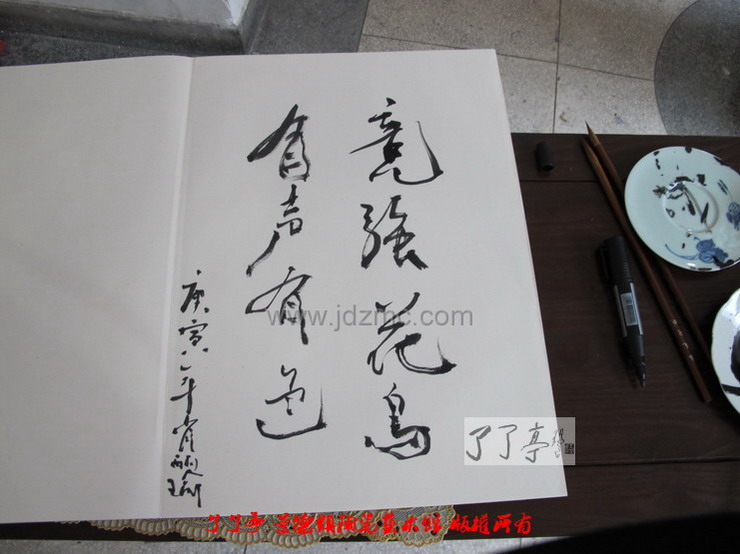 竞强花鸟
有声有色
庚寅八年肖丽瑜
www.jdzmc.com
了了亭
了了亭 景德镇陶瓷艺术馆 版权所有